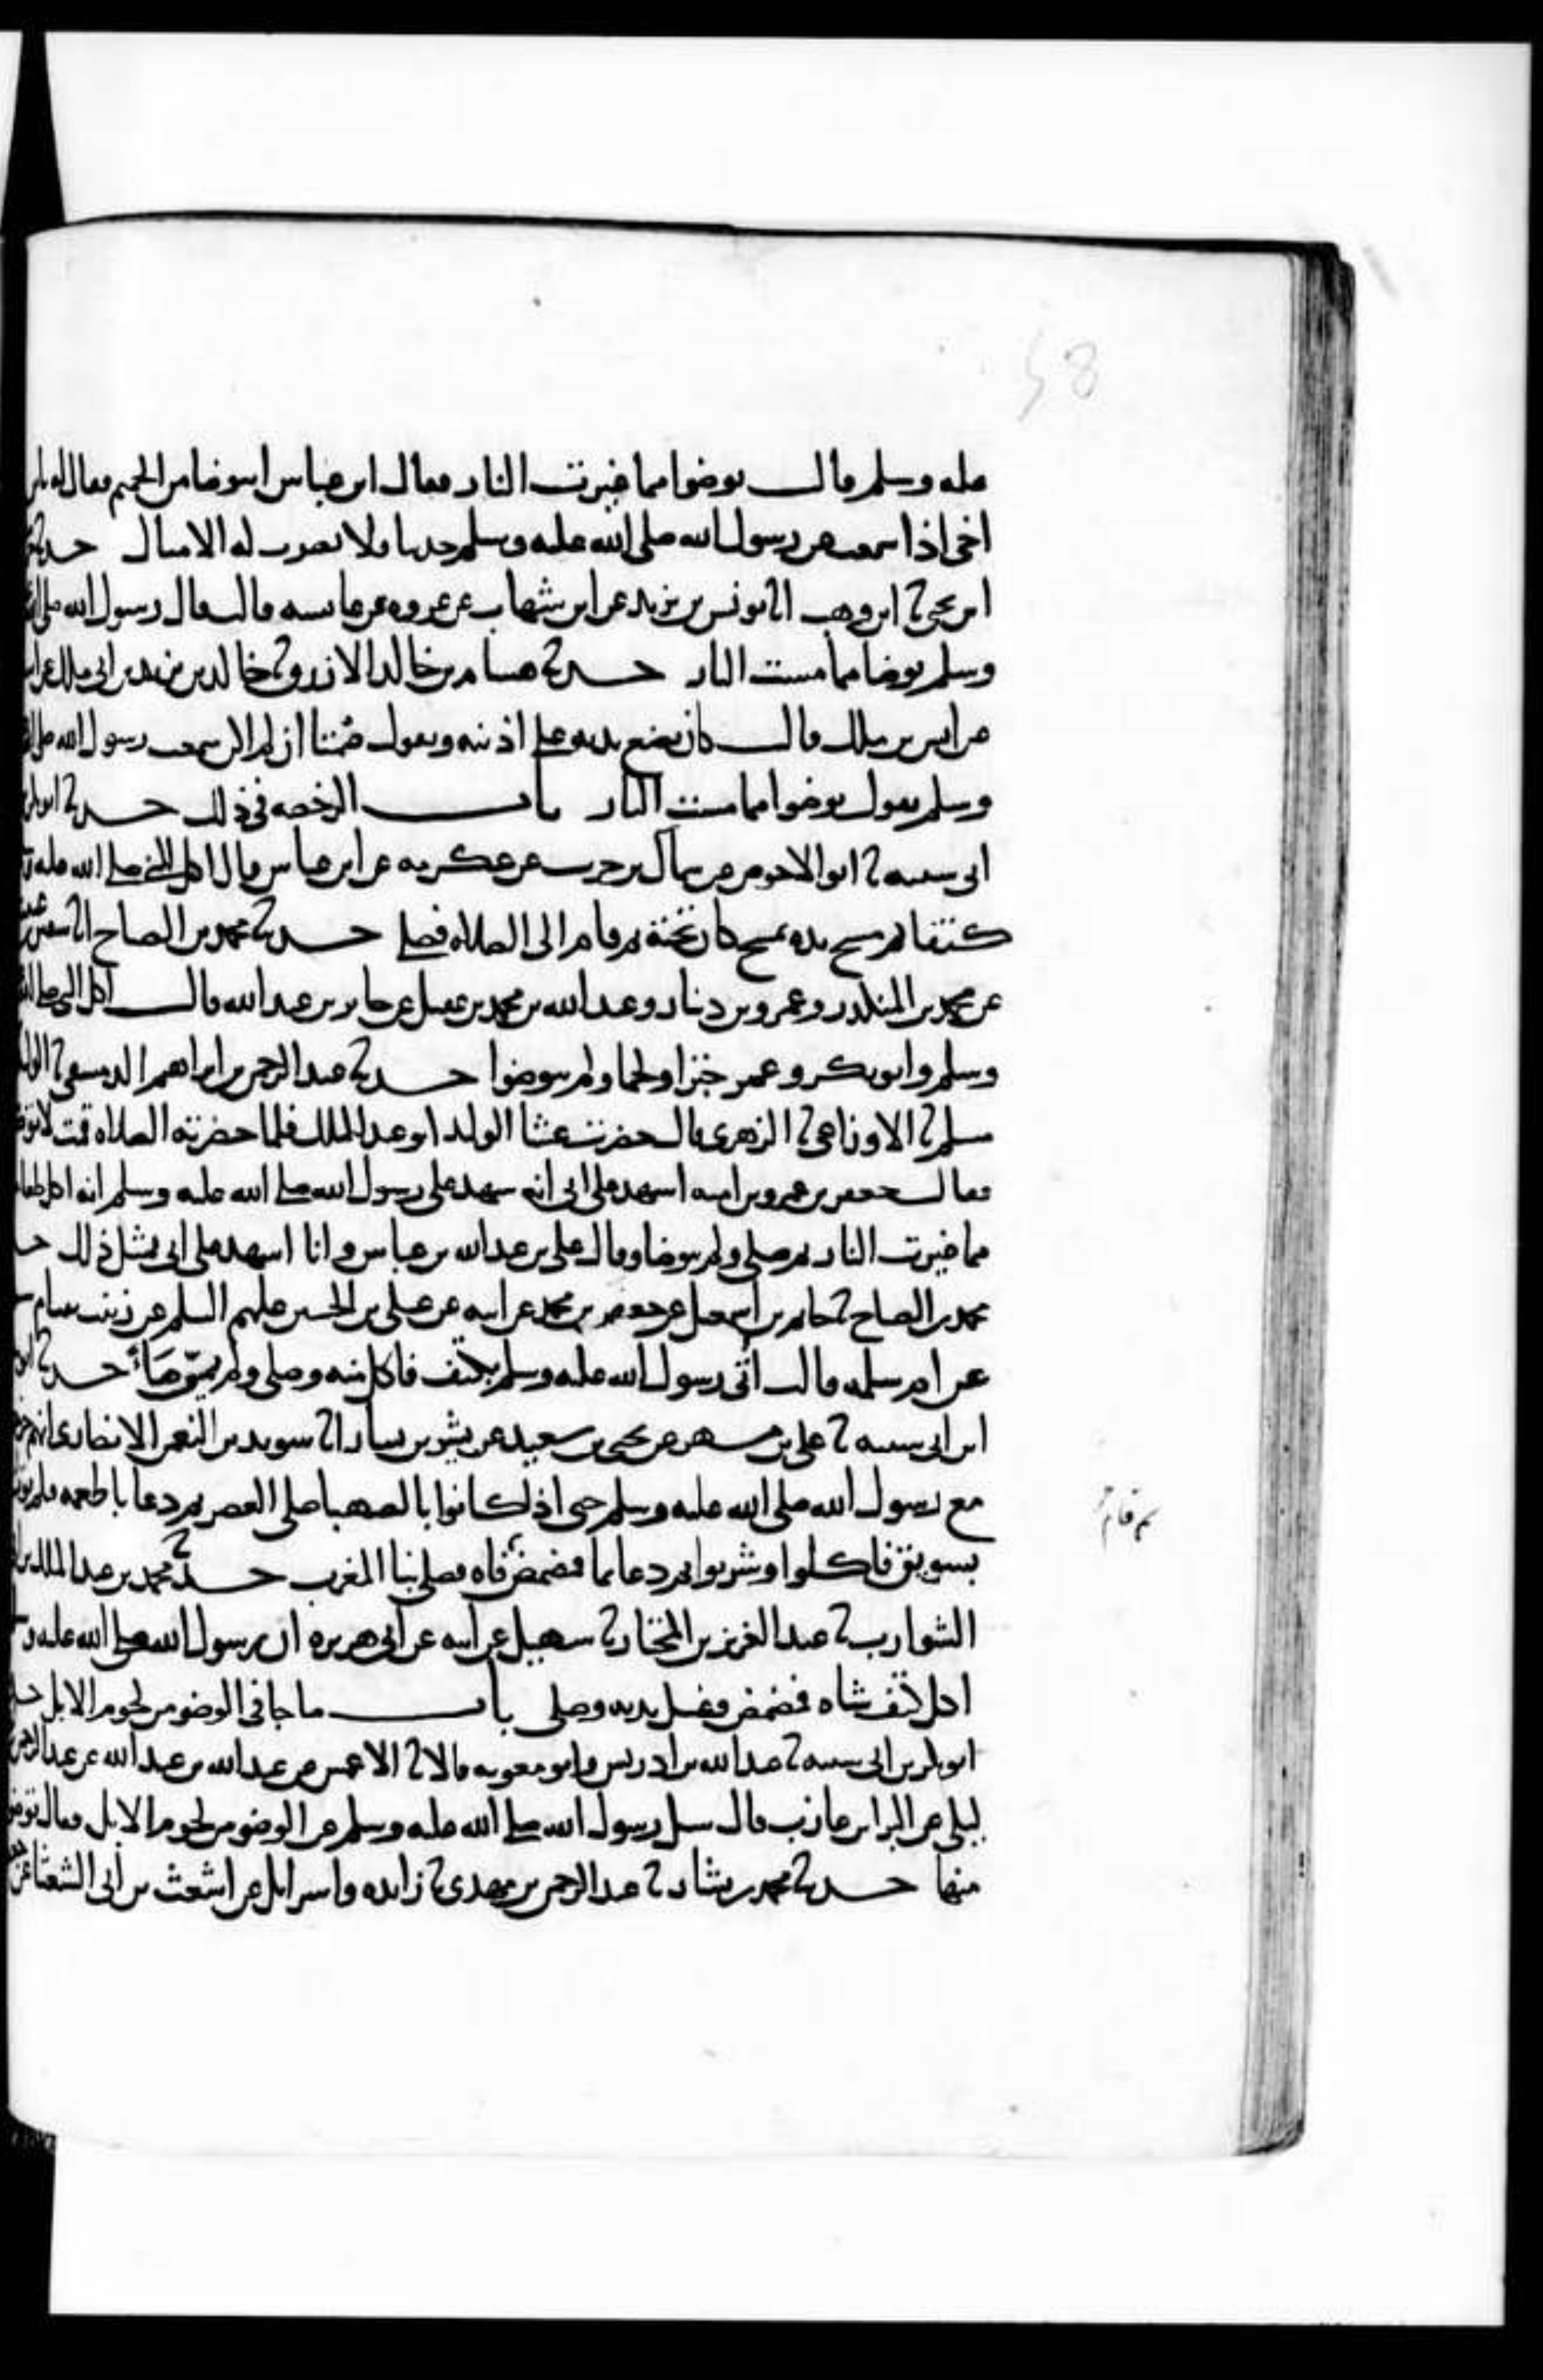 58
عليه وسلم قال توضوا مما غيرت النار فقال ابن عباس اتوضا من الحميم فقال له يابن
اخي اذا سمعت عن رسول الله صلى الله عليه وسلم حديثا فلا تضرب له الامثال حدثنا
ابن يحيى ثنا ابن وهب انا يونس بن يزيد عن ابن شهاب عن عروه عن عايشه قالت قال رسول الله صلى الله
وسلم توضا مما مست النار حدثنا هشام بن خالد الازرق ثنا خالد بن يزيد بن ابي ملك عن
عن انس بن ملك قال كان يضع يديه على اذنيه ويقول صمتا ان لم اكن سمعت رسول الله صلى
وسلم يقول توضوا مما مست النار باب الرخصه في ذلك حدثنا ابوبكر
ابي شيبه ثنا ابو الاحوص عن سماك بن حرب عن عكرمه عن ابن عباس قال اكل النبي صلى الله عليه
كتفا ثم مسح يده بمسح كان تحته ثم قام الى الصلاه فصلى حدثنا محمد بن الصباح انا سفين
عن محمد بن المنكدر وعمرو بن دينار وعبد الله بن محمد بن عقيل عن جابر بن عبد الله قال اكل النبي صلى الله
وسلم وابو بكر وعمر خبزا ولحما ولم يتوضوا حدثنا عبد الرحمن بن ابراهيم الدمشقي ثنا الوليد
مسلم ثنا الاوزاعي ثنا الزهري قال حضرت عشا الوليد او عبد الملك فلما حضرته الصلاه قمت لاتوضا
فقال جعفر بن عمرو بن اميه اشهد على ابي انه شهد على رسول الله صلى الله عليه وسلم انه اكل طعاما
مما غيرت النار ثم صلى ولم يتوضا وقال علي بن عبد الله بن عباس وانا اشهد على ابي بمثل ذلك
محمد بن الصباح ثنا حاتم بن اسمعيل عن جعفر بن محمد عن ابيه عن علي بن الحسين عليهم السلم عن زينب
عن ام سلمه قالت أتى رسول الله عليه وسلم بكتف فاكل منه وصلى ولم يمسّ مَاءً حدثنا
ابن ابي شيبه ثنا علي بن مسهر عن يحيى بن سعيد عن بشير بن يسار انا سويد بن النعمن الانصاري انهم
مع رسول الله صلى الله عليه وسلم حتى اذا كانوا بالصهبا صلى العصر ثم دعا باطعمه فلم يوت
بسويق فاكلوا وشربوا ثم دعا بما فمضمض فاه فصلى بنا المغرب حدثنا محمد بن عبد الملك بن
ثم قام
الشوارب ثنا عبد العزيز بن المختار ثنا سهيل عن ابيه عن ابي هريره ان رسول الله صلى الله عليه
اكل كتف شاه فمضمض وغسل يديه وصلى باب ما جا في الوضو من لحوم الابل
ابو بكر بن ابي شيبه ثنا عبد الله بن ادريس وابو معويه قالا ثنا الاعمش عن عبد الله بن عبد الله عن عبد الرحمن
ليلى عن البرا بن عازب قال سيل رسول الله صلى الله عليه وسلم عن الوضو من لحوم الابل فقال توضوا
منها حدثنا محمد بن بشار ثنا عبد الرحمن بن مهدي ثنا زايده واسرايل عن اشعث بن أبي الشعثا عن